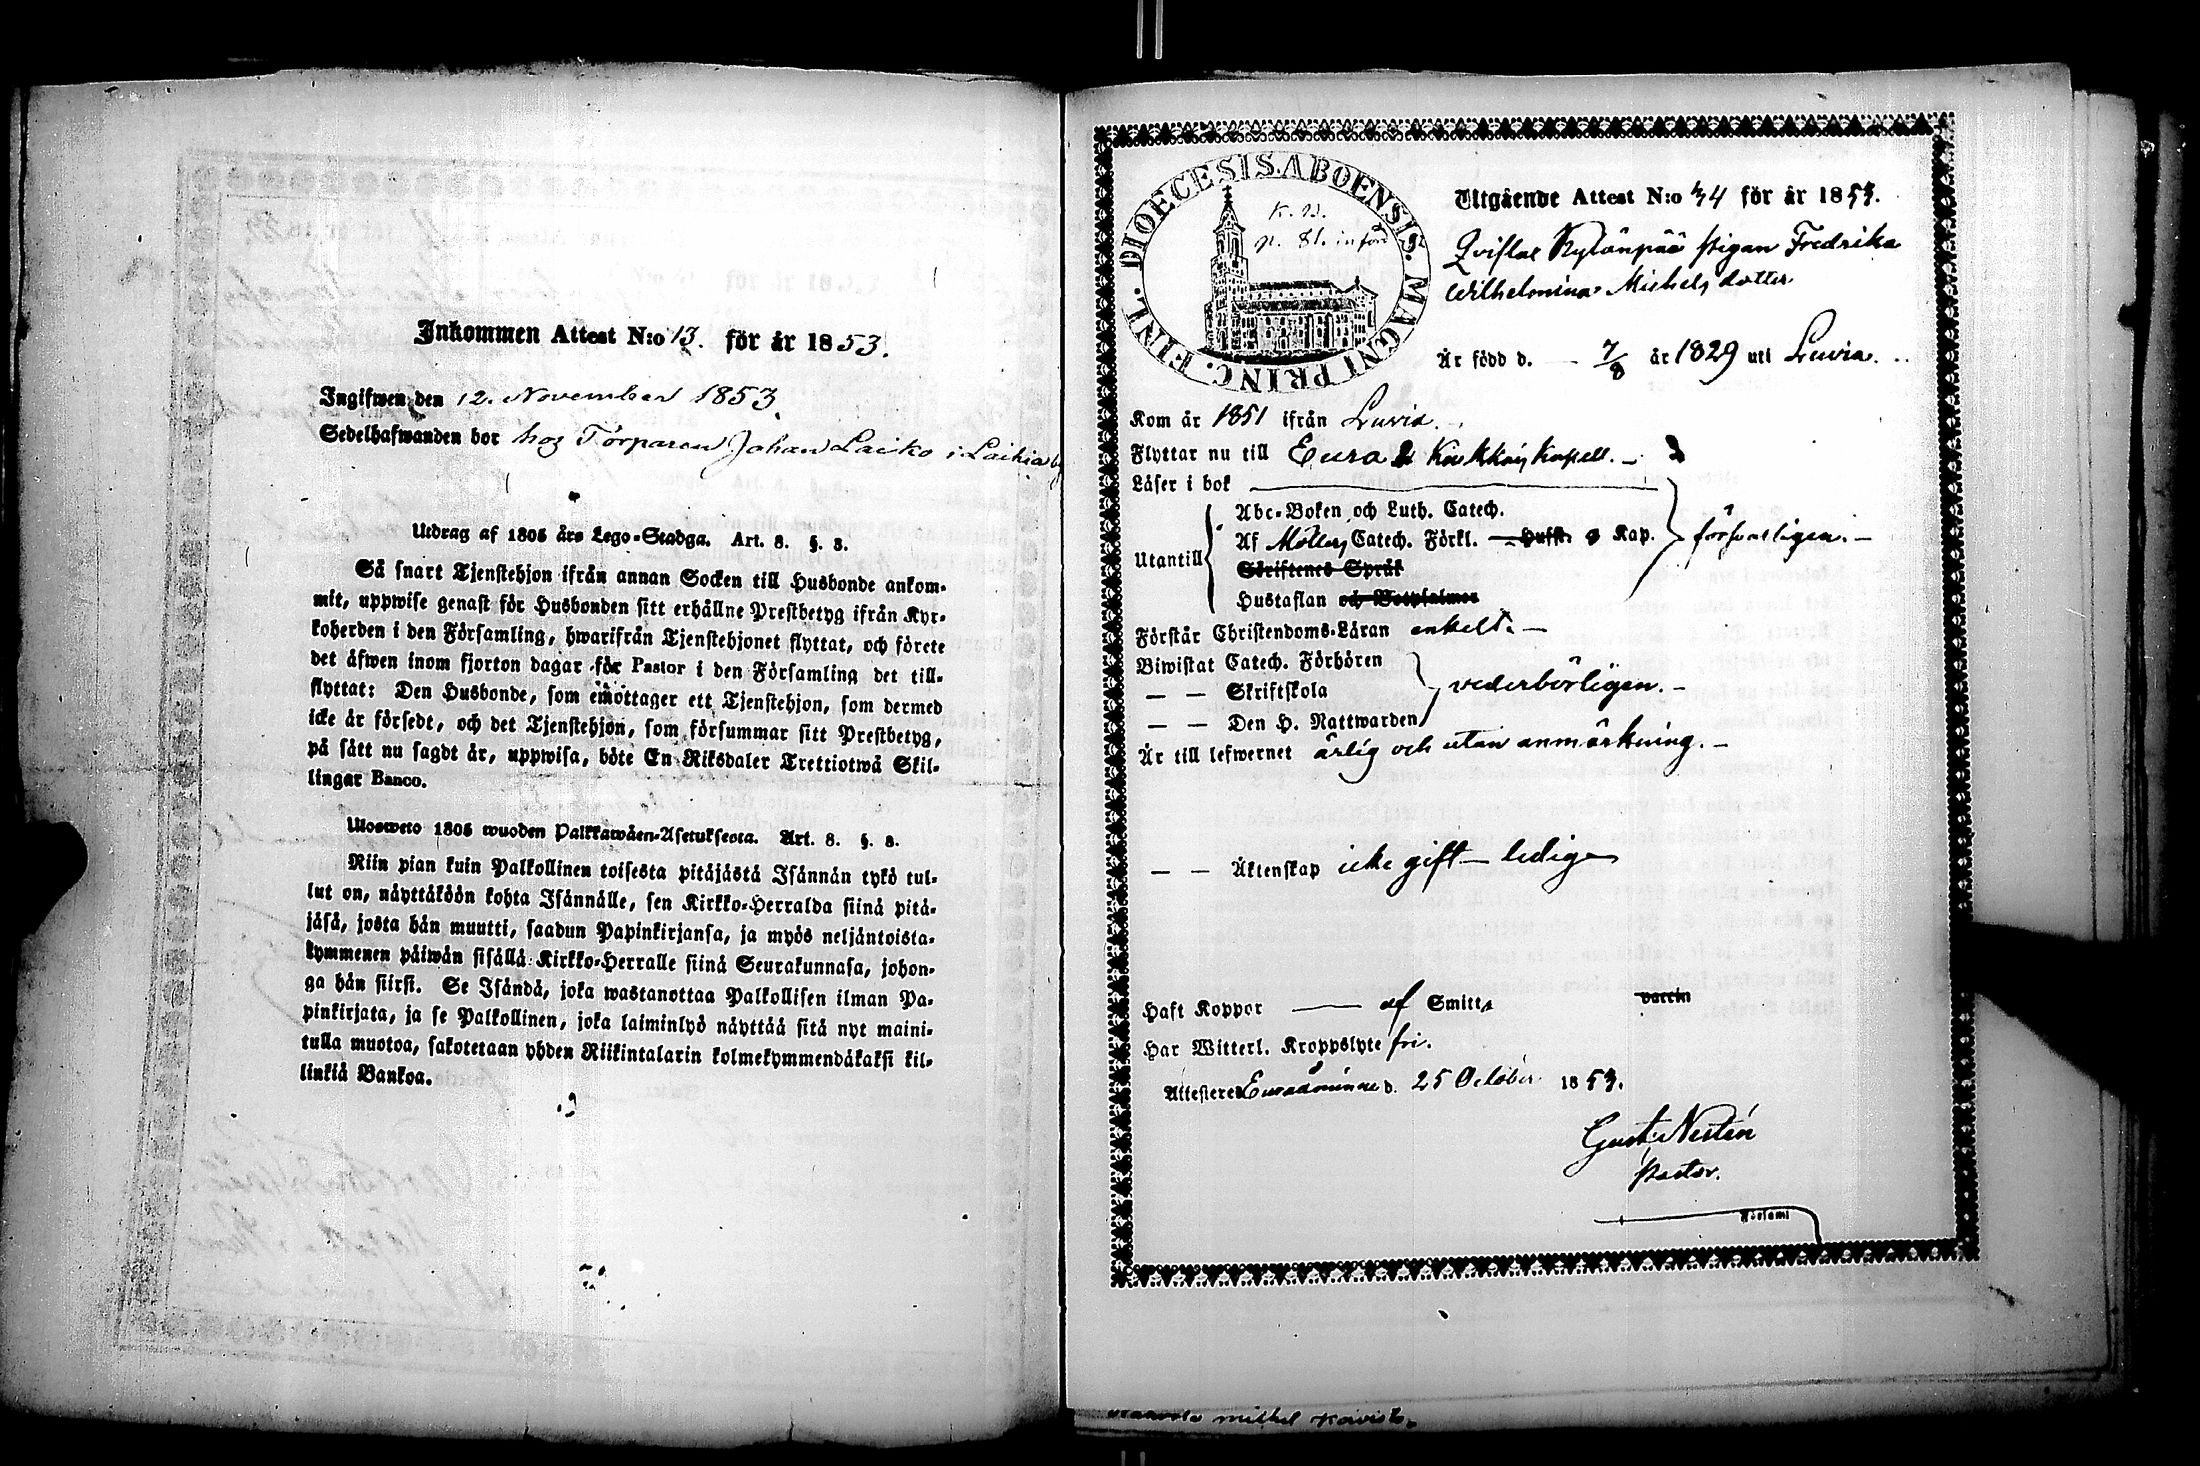 Inkommen Attest N:o 13. för år 1853.
Ingifwen den 12. November 1853.
Sedelhafwanden bor hos Torparen Johan Laiko i Laihia by
Utdrag af 1805 års Lego-Stadga. Art. 8. §. 8.
Så snart Tjenstehjon ifrån annan Socken till Husbonde ankom-
mit, uppwise genast för Husbonden sitt erhållne Prestbetyg ifrån Kyr-
koherden i den Församling, hwarifrån Tjenstehjonet flyttat, och förete
det äfwen inom fjorton dagar för Pastor i den Församling det till-
flyttat: Den Husbonde, som emottager ett Tjenstehjon, som dermed
icke är försedt, och det Tjenstehjon, som försummar sitt Prestbetyg,
på sätt nu sagdt är, uppwisa, böte En Riksdaler Trettiotwå Skil-
lingar Banco.
Ulosweto 1805 wuoden Palkkawäen-Asetuksesta. Art. 8. §. 8.
Niin pian kuin Palkollinen toisesta pitäjästä Isännän tykö tul-
lut on, näyttäköön kohta Isännälle, sen Kirkko-Herralda siinä pitä-
jäsä, josta hän muutti, saadun Papinkirjansa, ja myös neljäntoista-
kymmenen päiwän sisällä Kirkko-Herralle siinä Seurakunnasa, johon-
ga hän siirsi. Se Isändä, joka wastanottaa Palkollisen ilman Pa-
pinkirjata, ja se Palkollinen, joka laiminlyö näyttää sitä nyt maini-
tulla muotoa, sakotetaan yhden Riikintalarin kolmekymmendäkaksi kil-
linkiä Bankoa.
DIOECESIS. ABOENSIS. MAGNI PRINC. FINL.
K. D.
p. 81. införd
Utgående Attest N:o 34 för år 1853.
Qvistlae Kylänpää Pigan Fredrika
Wilhelmina Michels dotter
Är född d. 7/8 år 1829 uti Luvia.
Kom år 1851 ifrån Luvia.
Flyttar nu till Eura Kapell.
Läser i bok
Abc-Boken och Luth. Catech.
Utantill Af Möllers Catech. Förkl. Hufst. Kap. försvarligen.
Skriftenes Språk
Hustaflan och Botpsalmer
Förstår Christendoms-Läran enkelt.
Biwistat Catech. Förhören
— — Skriftskola vederbörligen.
— — Den H. Nattwarden
Är till lefwernet ärlig och utan anmärkning.
— — Äktenskap icke gift — ledig
Haft Koppor — af Smitta vaccin
Har Witterl. Kroppslyte fri.
Attesteres Euraåminne d. 25 October 1853.
Gust. Nestén
Pastor.
Församl